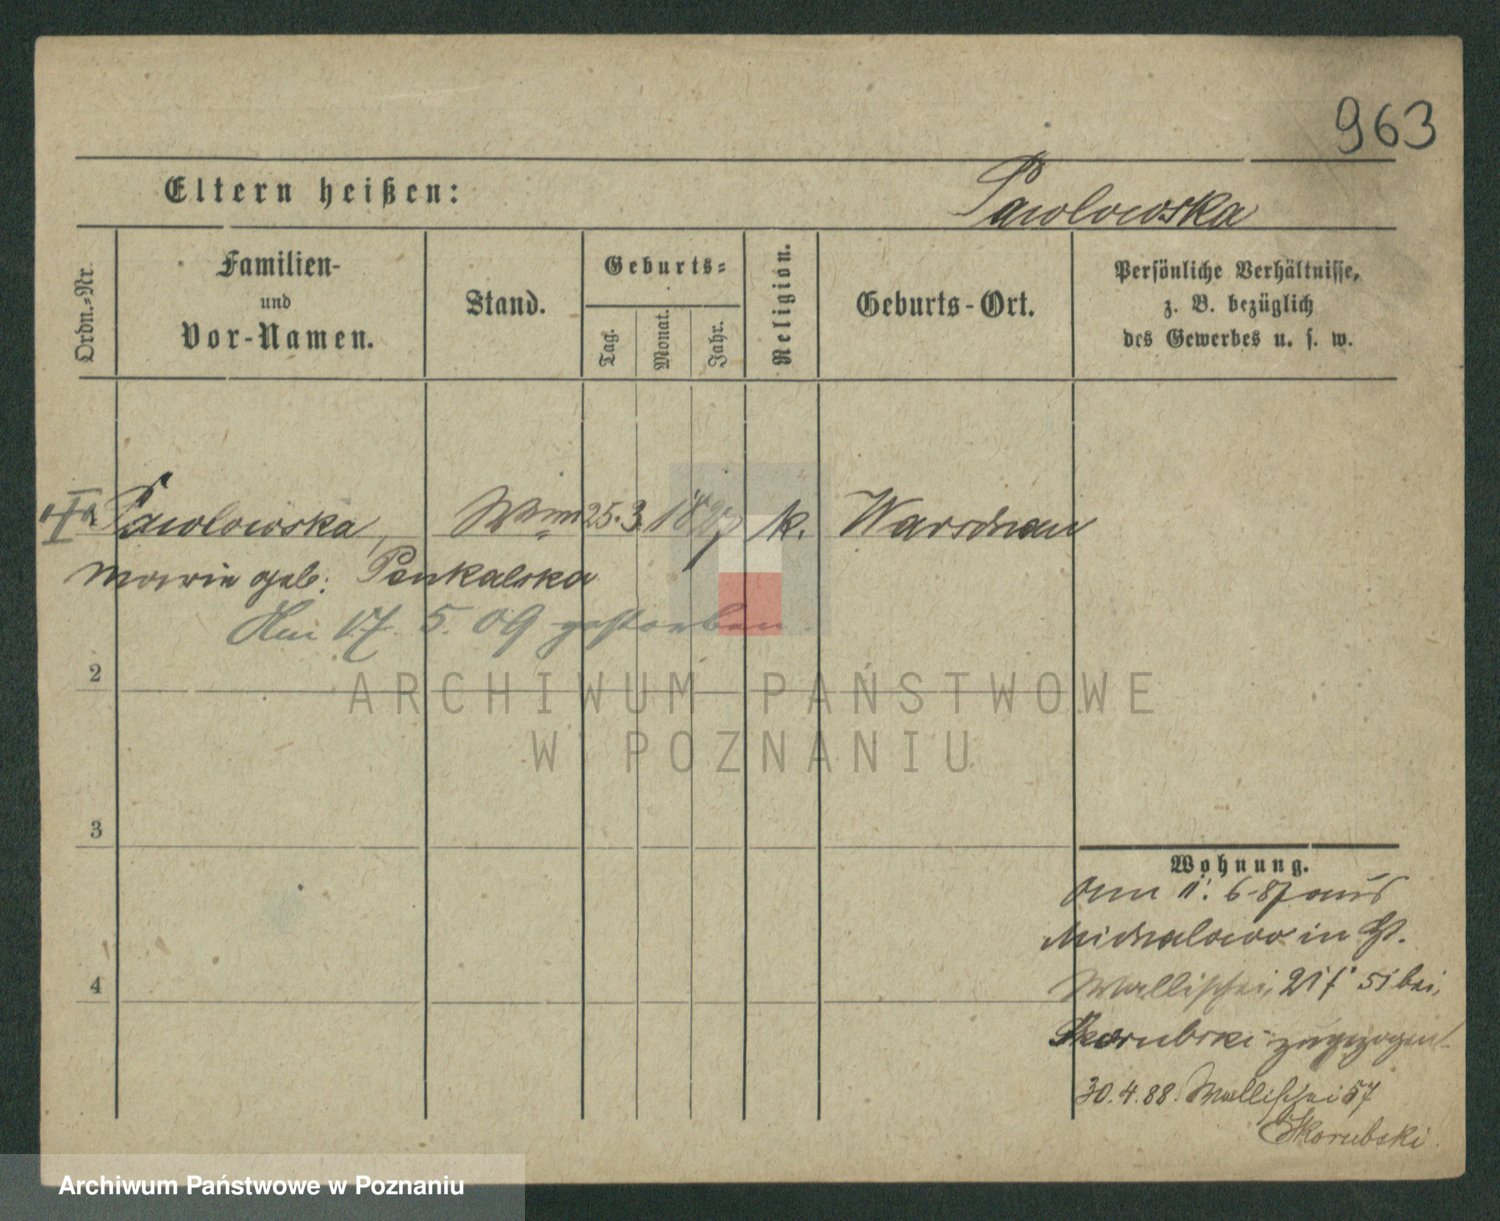 963
Eltern heißen:
Pawlowska
Ordn.-Nr.
Familien-
und
Vor-Namen.
Stand.
Geburts-
Tag.
Monat.
Jahr.
Religion.
Geburts-Ort.
Persönliche Verhältnisse,
z. B. bezüglich
des Gewerbes u. s. w.
Pawlowska, Wwe 25. 3. k. Warschau
Marie geb: Penkalska
Am 17. 5. 09 gestorben.
2
ARCHIWUM PAŃSTWOWE
W POZNANIU
3
Wohnung.
6.87 aus
Michalowo in
Wallischei, bei
Skorubski zugezogen
4
30.4.88. Wallischei 57
Skorubski
Archiwum Państwowe w Poznaniu